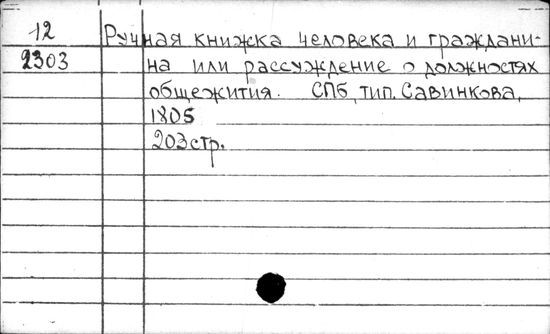 12 Ручная книжка человека и граждани-
2303 на или рассуждение о должностях
общежития. СПб, тип. Савинкова,
1805
203стр.